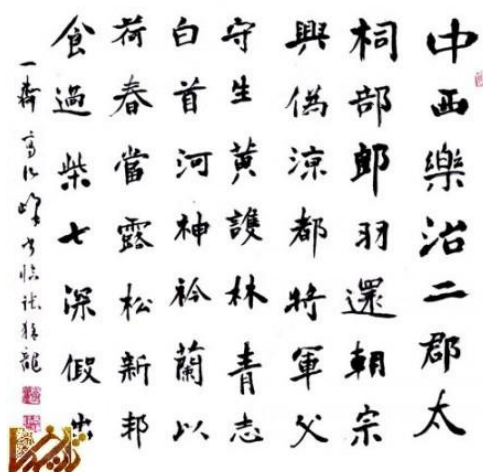 中西樂治二郡太
桐部郎羽還朝宗
興偽涼都將軍父
守生黃護林青志
白首河神衿蘭以
荷春當露松新邦
食過柴七深假
一齋高峰臨張猛龍